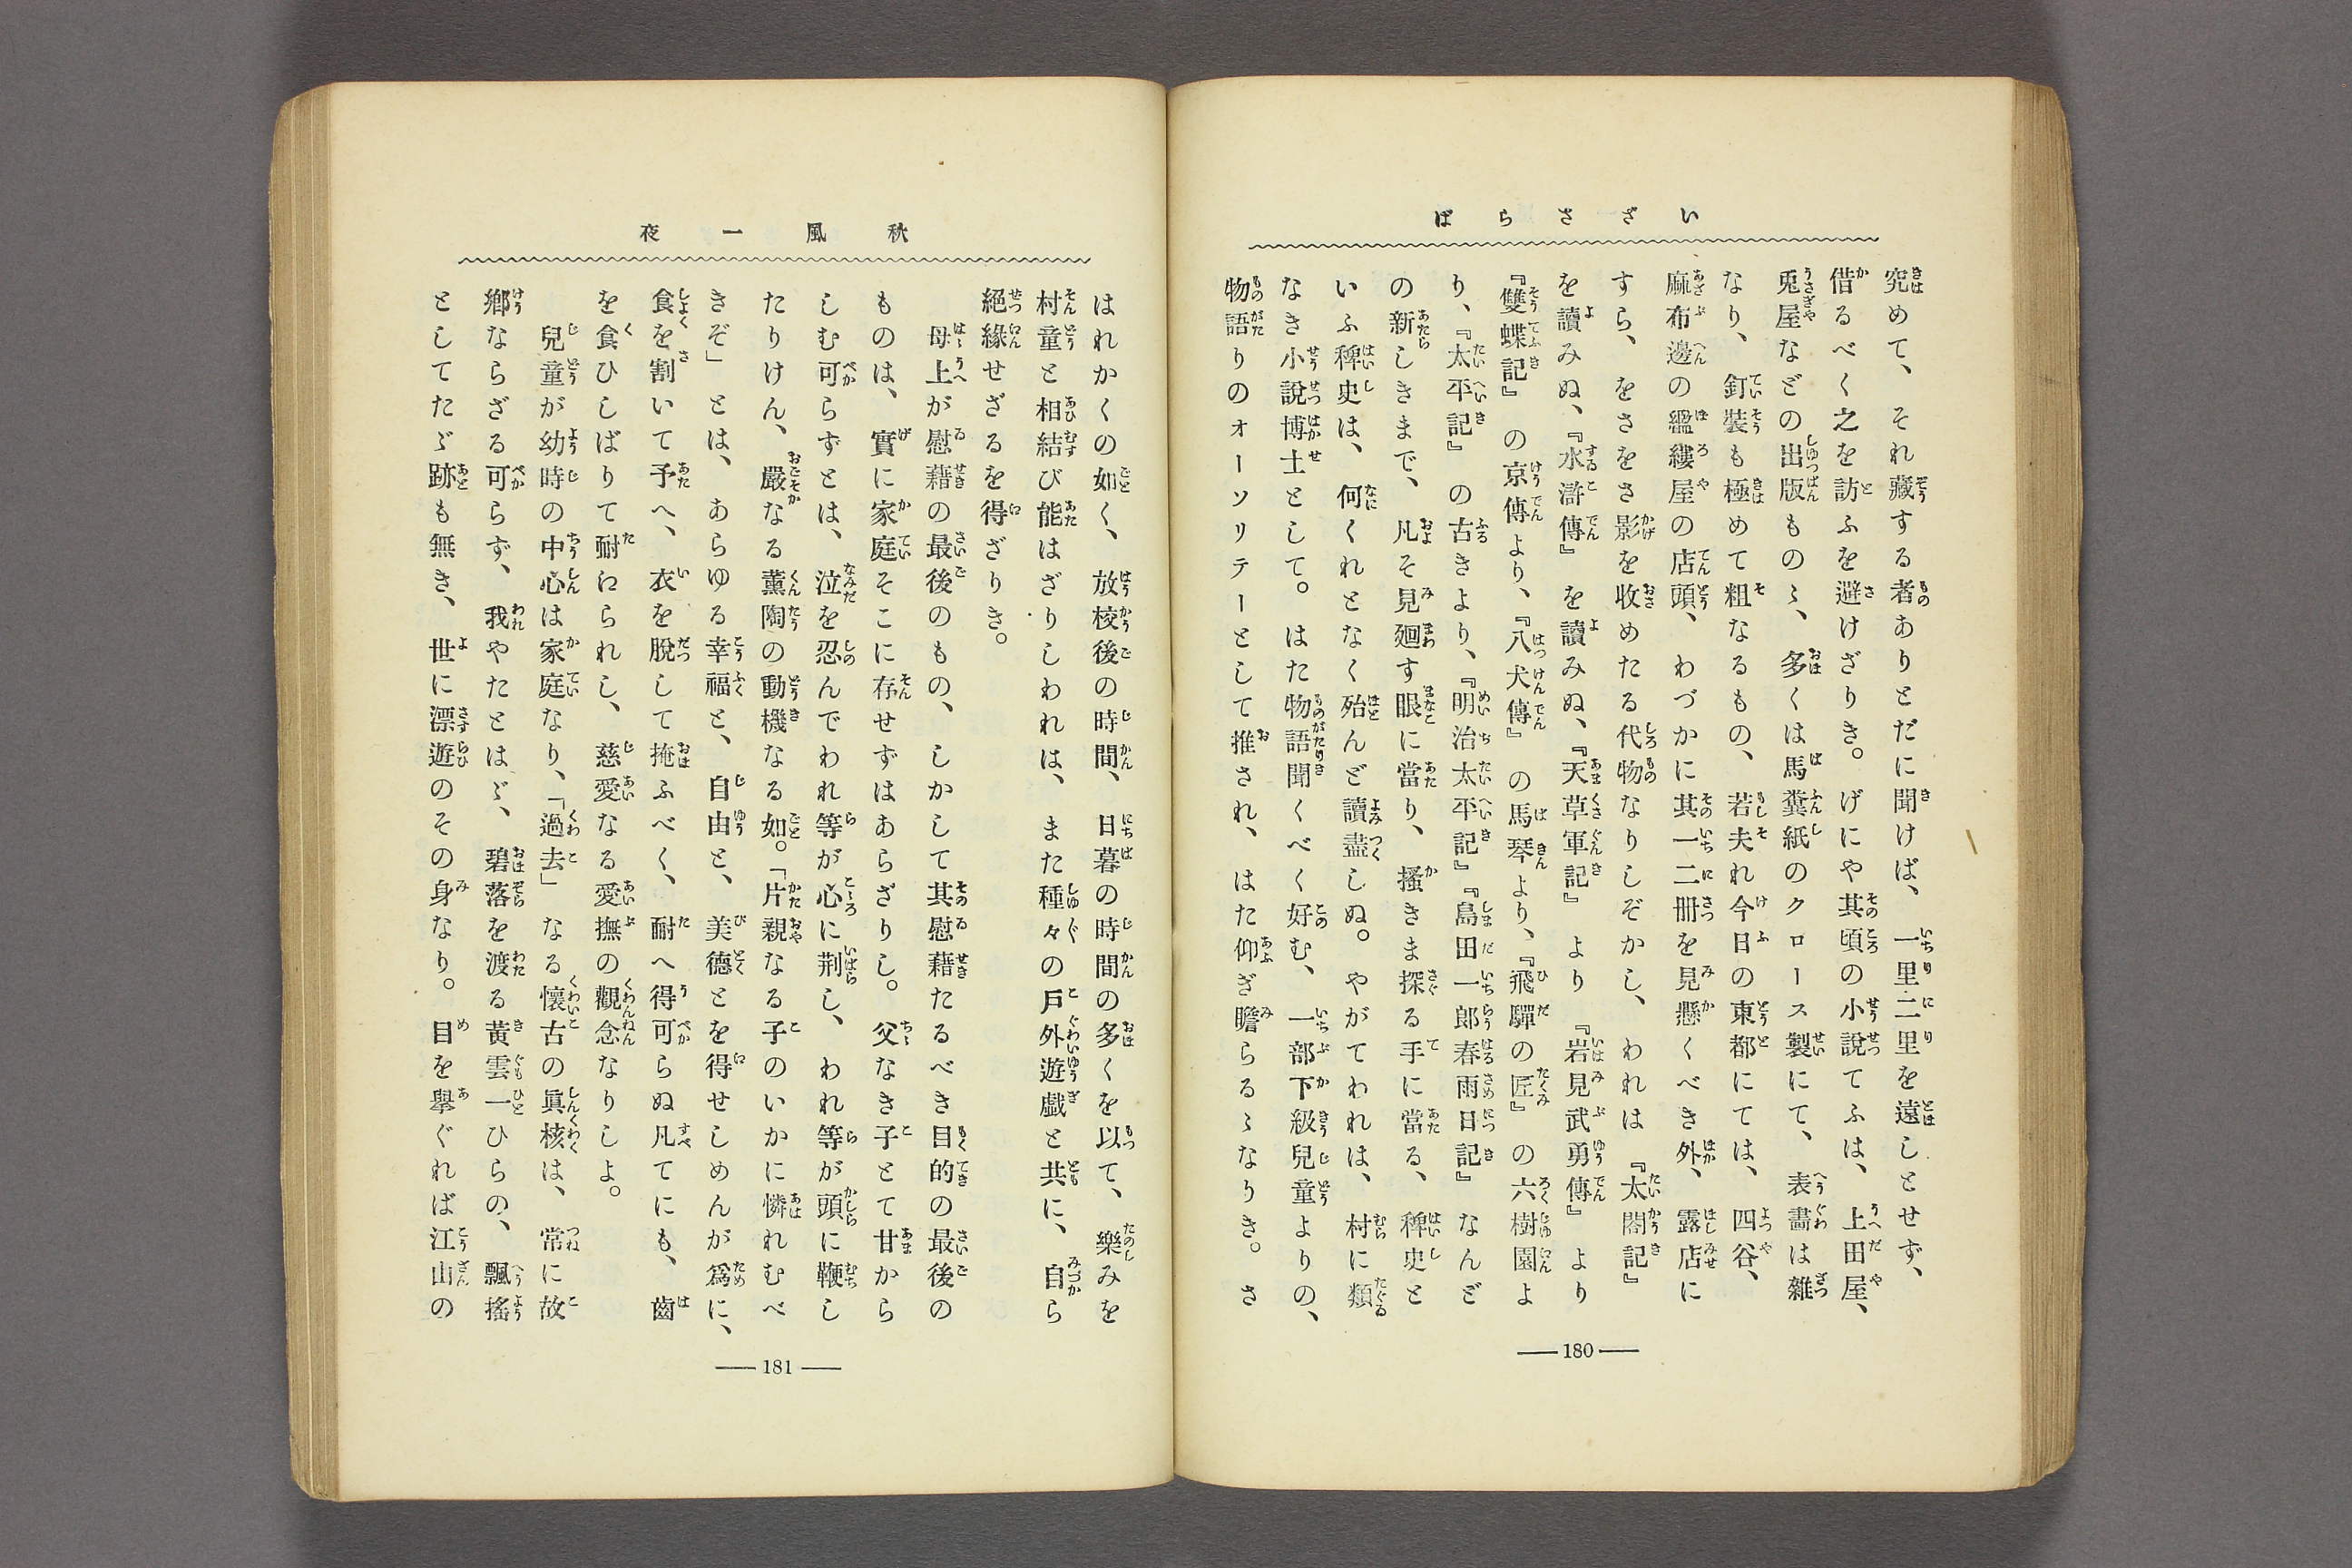 いざさらば
究めて、それ藏する者ありとだに聞けば、一里二里を遠しとせず、
借るべく之を訪ふを避けざりき。げにや其頃の小說てふは、上田屋、
兎屋などの出版ものゝ、多くは馬糞紙のクロース製にて、表畵は雜
なり、釘裝も極めて粗なるもの、若夫れ今日の東都にては、四谷、
麻布邊の襤縷屋の店頭、わづかに其一二冊を見懸くべき外、露店に
すら、をさをさ影を收めたる代物なりしぞかし、われは『太閤記』
を讀みぬ、『水滸傳』を讀みぬ、『天草軍記』より『岩見武勇傳』より
『雙蝶記』の京傳より、『八犬傳』の馬琴より、『飛驒の匠』の六樹園よ
り、『太平記』の古きより、『明治太平記』『島田一郎春雨日記』なんど
の新しきまで、凡そ見廻す眼に當り、搔きま探る手に當る、稗史と
いふ稗史は、何くれとなく殆んど讀盡しぬ。やがてわれは、村に類
なき小說博士として。はた物語聞くべく好む、一部下級兒童よりの、
物語りのオーソリテーとして推され、はた仰ぎ瞻らるゝなりき。さ
―180―
秋風一夜
はれかくの如く、放校後の時間、日暮の時間の多くを以て、樂みを
村童と相結び能はざりしわれは、また種々の戶外遊戲と共に、自ら
絕緣せざるを得ざりき。
母上が慰藉の最後のもの、しかして其慰藉たるべき目的の最後の
ものは、實に家庭そこに存せずはあらざりし。父なき子とて甘から
しむ可らずとは、泣を忍んでわれ等が心に荆し、われ等が頭に鞭し
たりけん、嚴なる薰陶の動機なる如。「片親なる子のいかに憐れむべ
きぞ」とは、あらゆる幸福と、自由と、美德とを得せしめんが爲に、
食を割いて予へ、衣を脫して掩ふべく、耐へ得可らぬ凡てにも、齒
を食ひしばりて耐ねられし、慈愛なる愛撫の觀念なりしよ。
兒童が幼時の中心は家庭なり、「過去」なる懷古の眞核は、常に故
鄕ならざる可らず、我やたとはゞ、碧落を渡る黃雲一ひらの、飄搖
としてたゞ跡も無き、世に漂遊のその身なり。目を擧ぐれば江山の
―181―